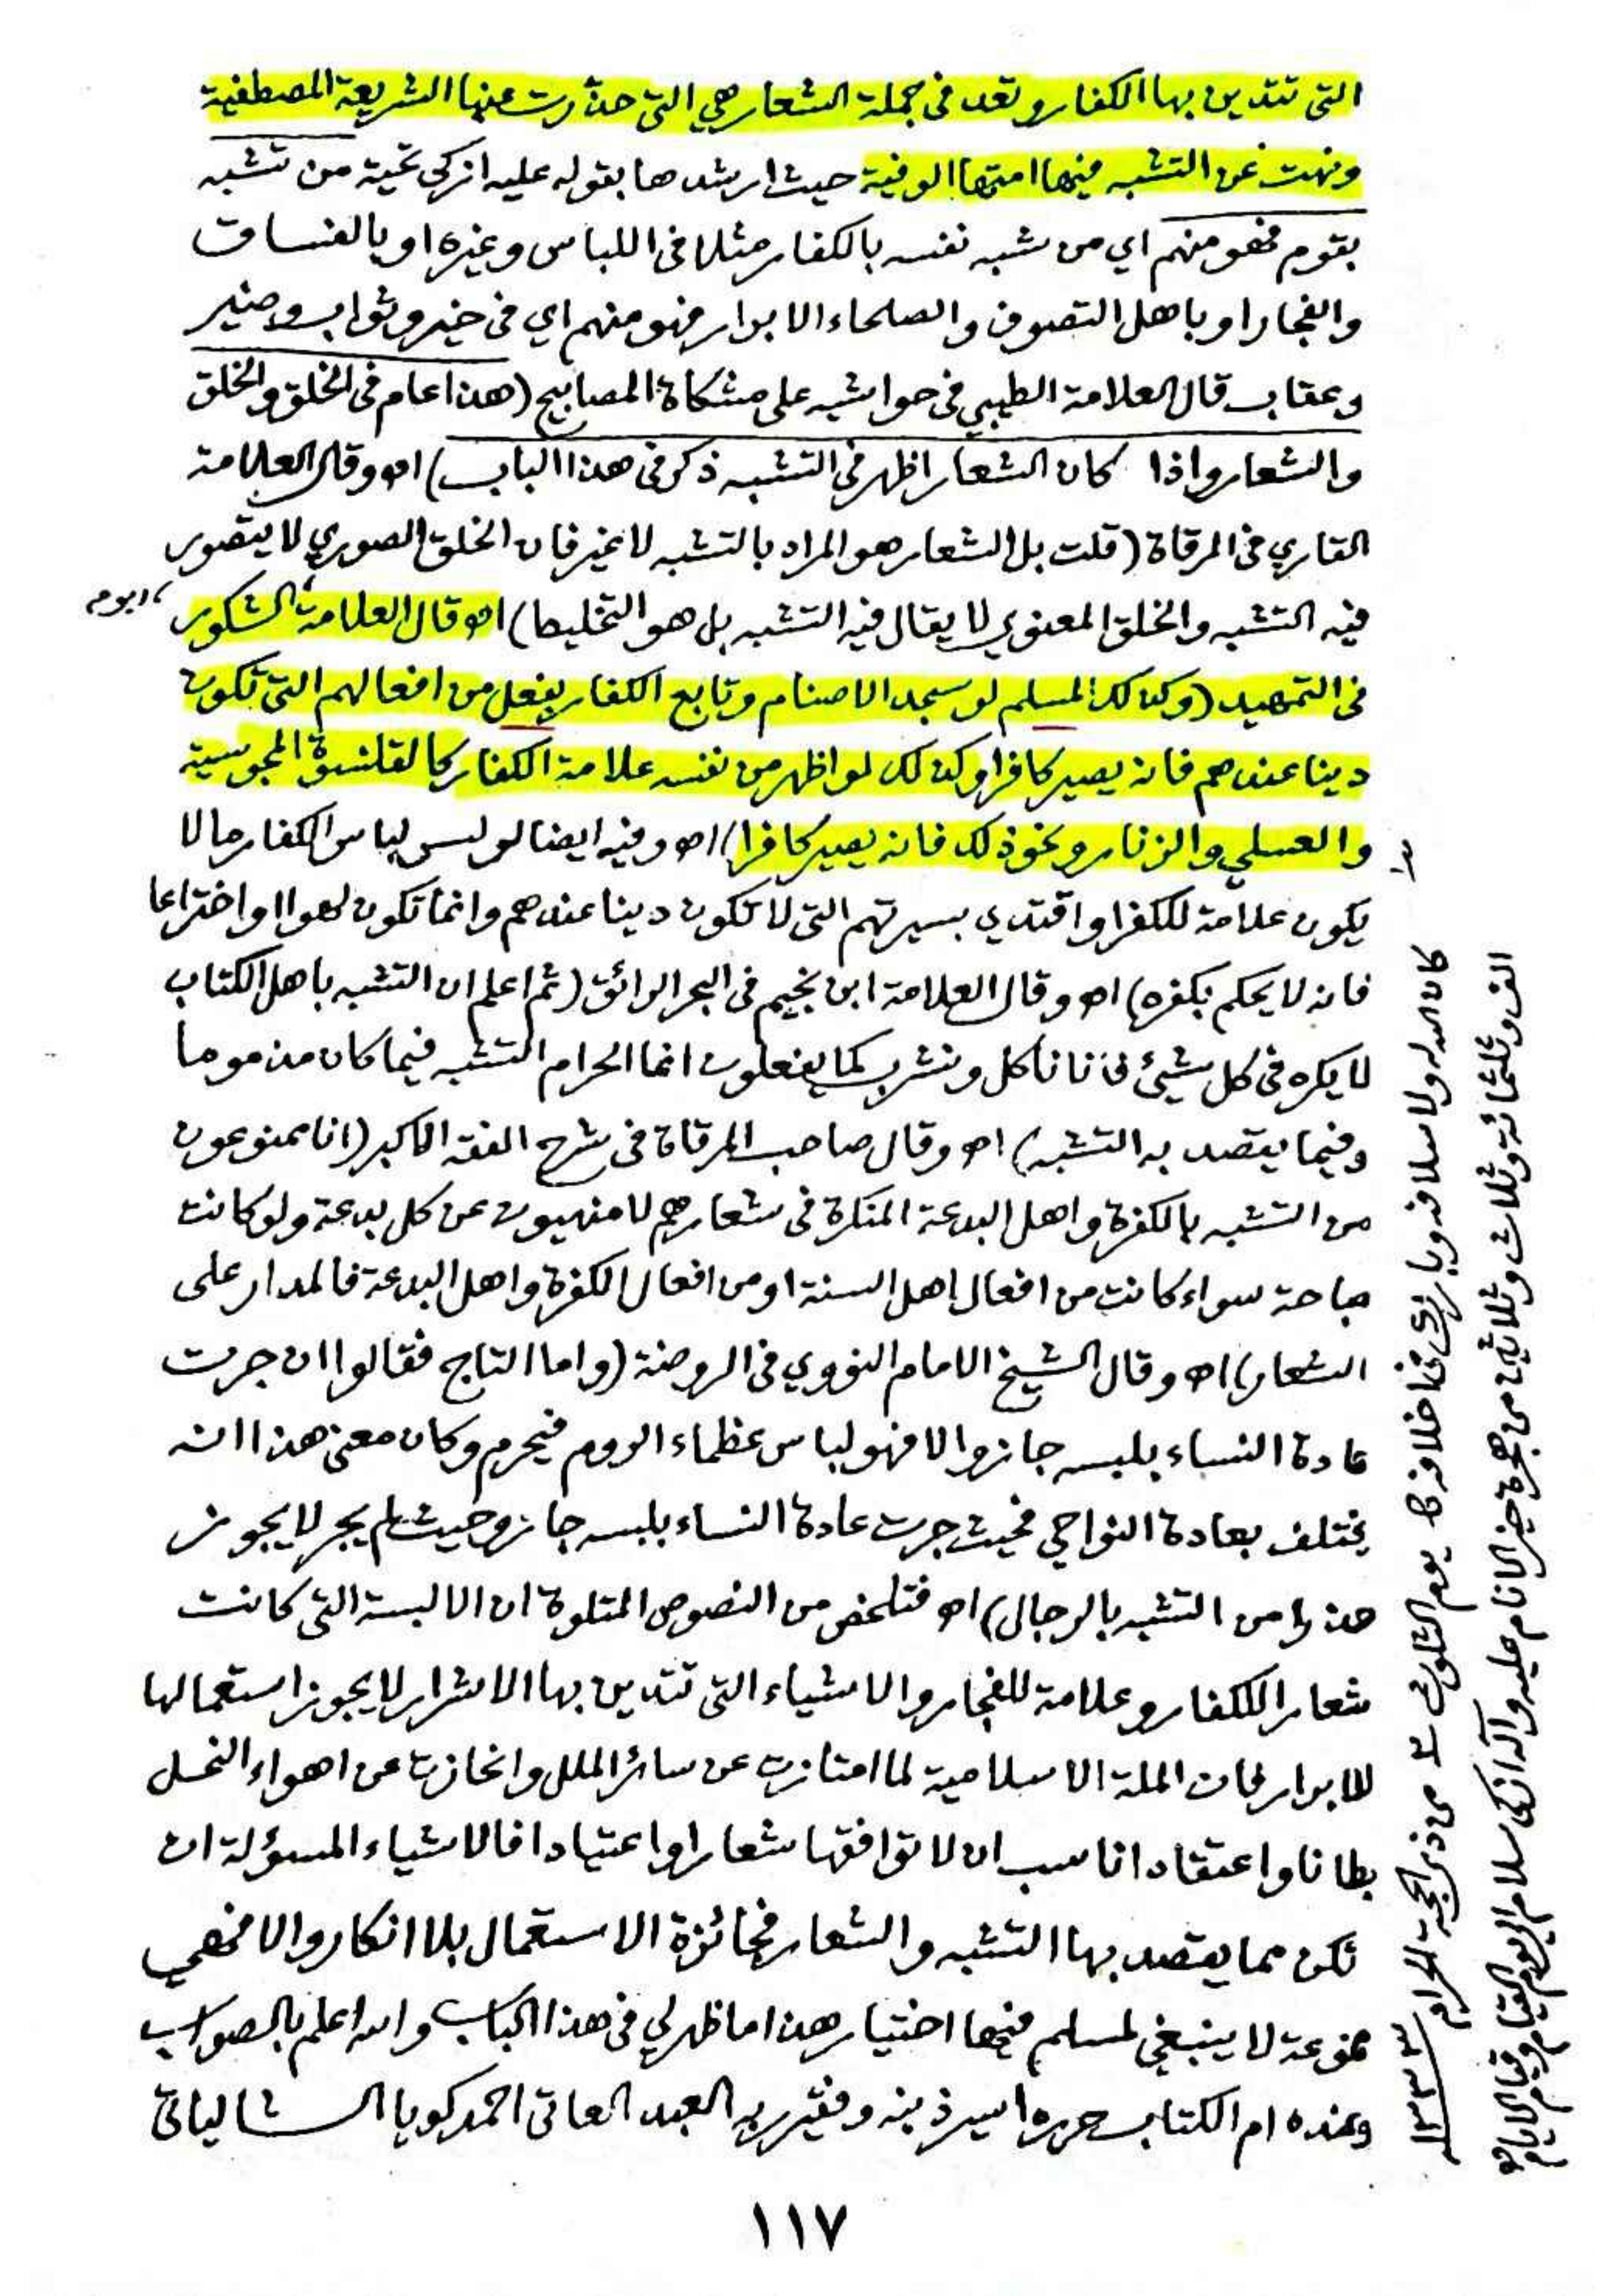 التى تتدين بها الكفار وتعد فى جملة الشعار هي التى حذرت عنها الشريعة المصطفية
ونهت عن التشبه فيها امتها الوفية حيث ارشدها بقوله عليه ازكى تحية من تشبه
بقوم فهو منهم اي من شبه نفسه بالكفار مثلا فى اللباس وغيره او بالفساق
والفجار او باهل التصوف والصلحاء الابرار فهو منهم اي فى خير وثواب وضير
وعقاب قال العلامة الطيبي فى حواشيه على مشكاة المصابيح (هذا عام فى الخلق والخلق
والشعار واذا كان الشعار اظهر فى التشبه ذكر فى هذا الباب) اه وقال العلامة
القاري فى المرقاة (قلت بل الشعار هو المراد بالتشبه لا غير فان الخلق الصوري لا يتصور
فيه التشبه والخلق المعنوي لا يقال فيه التشبه بل هو التخلیط) اه وقال العلامة الشكور
فى التمهيد (وكذلك المسلم لو سجد الاصنام وتابع الكفار بفعل من افعالهم التى تكون
دينا عندهم فانه يصير كافرا وكذلك لو اظهر من نفسه علامة الكفار كالقلنسوة المجوسية
والعسلي والزنار ونحو ذلك فانه يصير كافرا) اه وفيه ايضا لو لبس لباس الكفار مالا
يكون علامة للكفر او اقتدي بسيرتهم التى لا تكون دينا عندهم وانما تكون لهوا او اختراعا
فانه لا يحكم بكفره) اه وقال العلامة ابن نجيم فى البحر الرائق (ثم اعلم ان التشبه باهل الكتاب
لا يكره فى كل شيئ فاننا نأكل ونشرب كما يفعلون انما الحرام التشبه فيما كان مذموما
وفيما يقصد به التشبه) اه وقال صاحب المرقاة فى شرح الفقه الاكبر (انا ممنوعون
من التشبه بالكفرة واهل البدعة المنكرة فى شعارهم لا منهيون عن كل بدعة ولو كانت
مباحة سواء كانت من افعال اهل السنة او من افعال الكفرة واهل البدعة فالمدار على
الشعار) اه وقال الشيخ الامام النووي فى الروضة (واما التاج فقالوا ان جرت
عادة النساء بلبسه جاز والا فهو لباس عظماء الروم فيحرم وكان معنى هذا انه
يختلف بعادة النواحي فحيث جرت عادة النساء بلبسه جاز وحيث لم يجر لا يجوز
حذرا من التشبه بالرجال) اه فتلخص من النصوص المتلوة ان الالبسة التى كانت
شعارا للكفار وعلامة للفجار والاشياء التى تتدين بها الاشرار لا يجوز استعمالها
للابرار فان الملة الاسلامية لما امتازت عن سائر الملل وانحازت عن اهواء النحل
بطانا واعتقادا ناسب ان لا توافقها شعارا واعتيادا فالاشياء المسؤلة ان
تكن مما يقصد بها التشبه والشعار فجائزة الاستعمال بلا انكار والا فهي
ممنوعة لا ينبغي لمسلم فيها اختيار هذا ما ظهر لي فى هذا الباب والله اعلم بالصواب
وعنده ام الكتاب حرره اسير ذنبه وفقير ربه العبد العاتى احمد كويا الشالياتى
كان الله له ولاسلافه وبارك فى اخلافه يوم الثلوث من ذى الحجة الحرام ١٣٣٣
الف وثلثمائة وثلاث وثلاثين من هجرة خير الانام عليه وآله ازكى سلام الى يوم القيام
١١٧